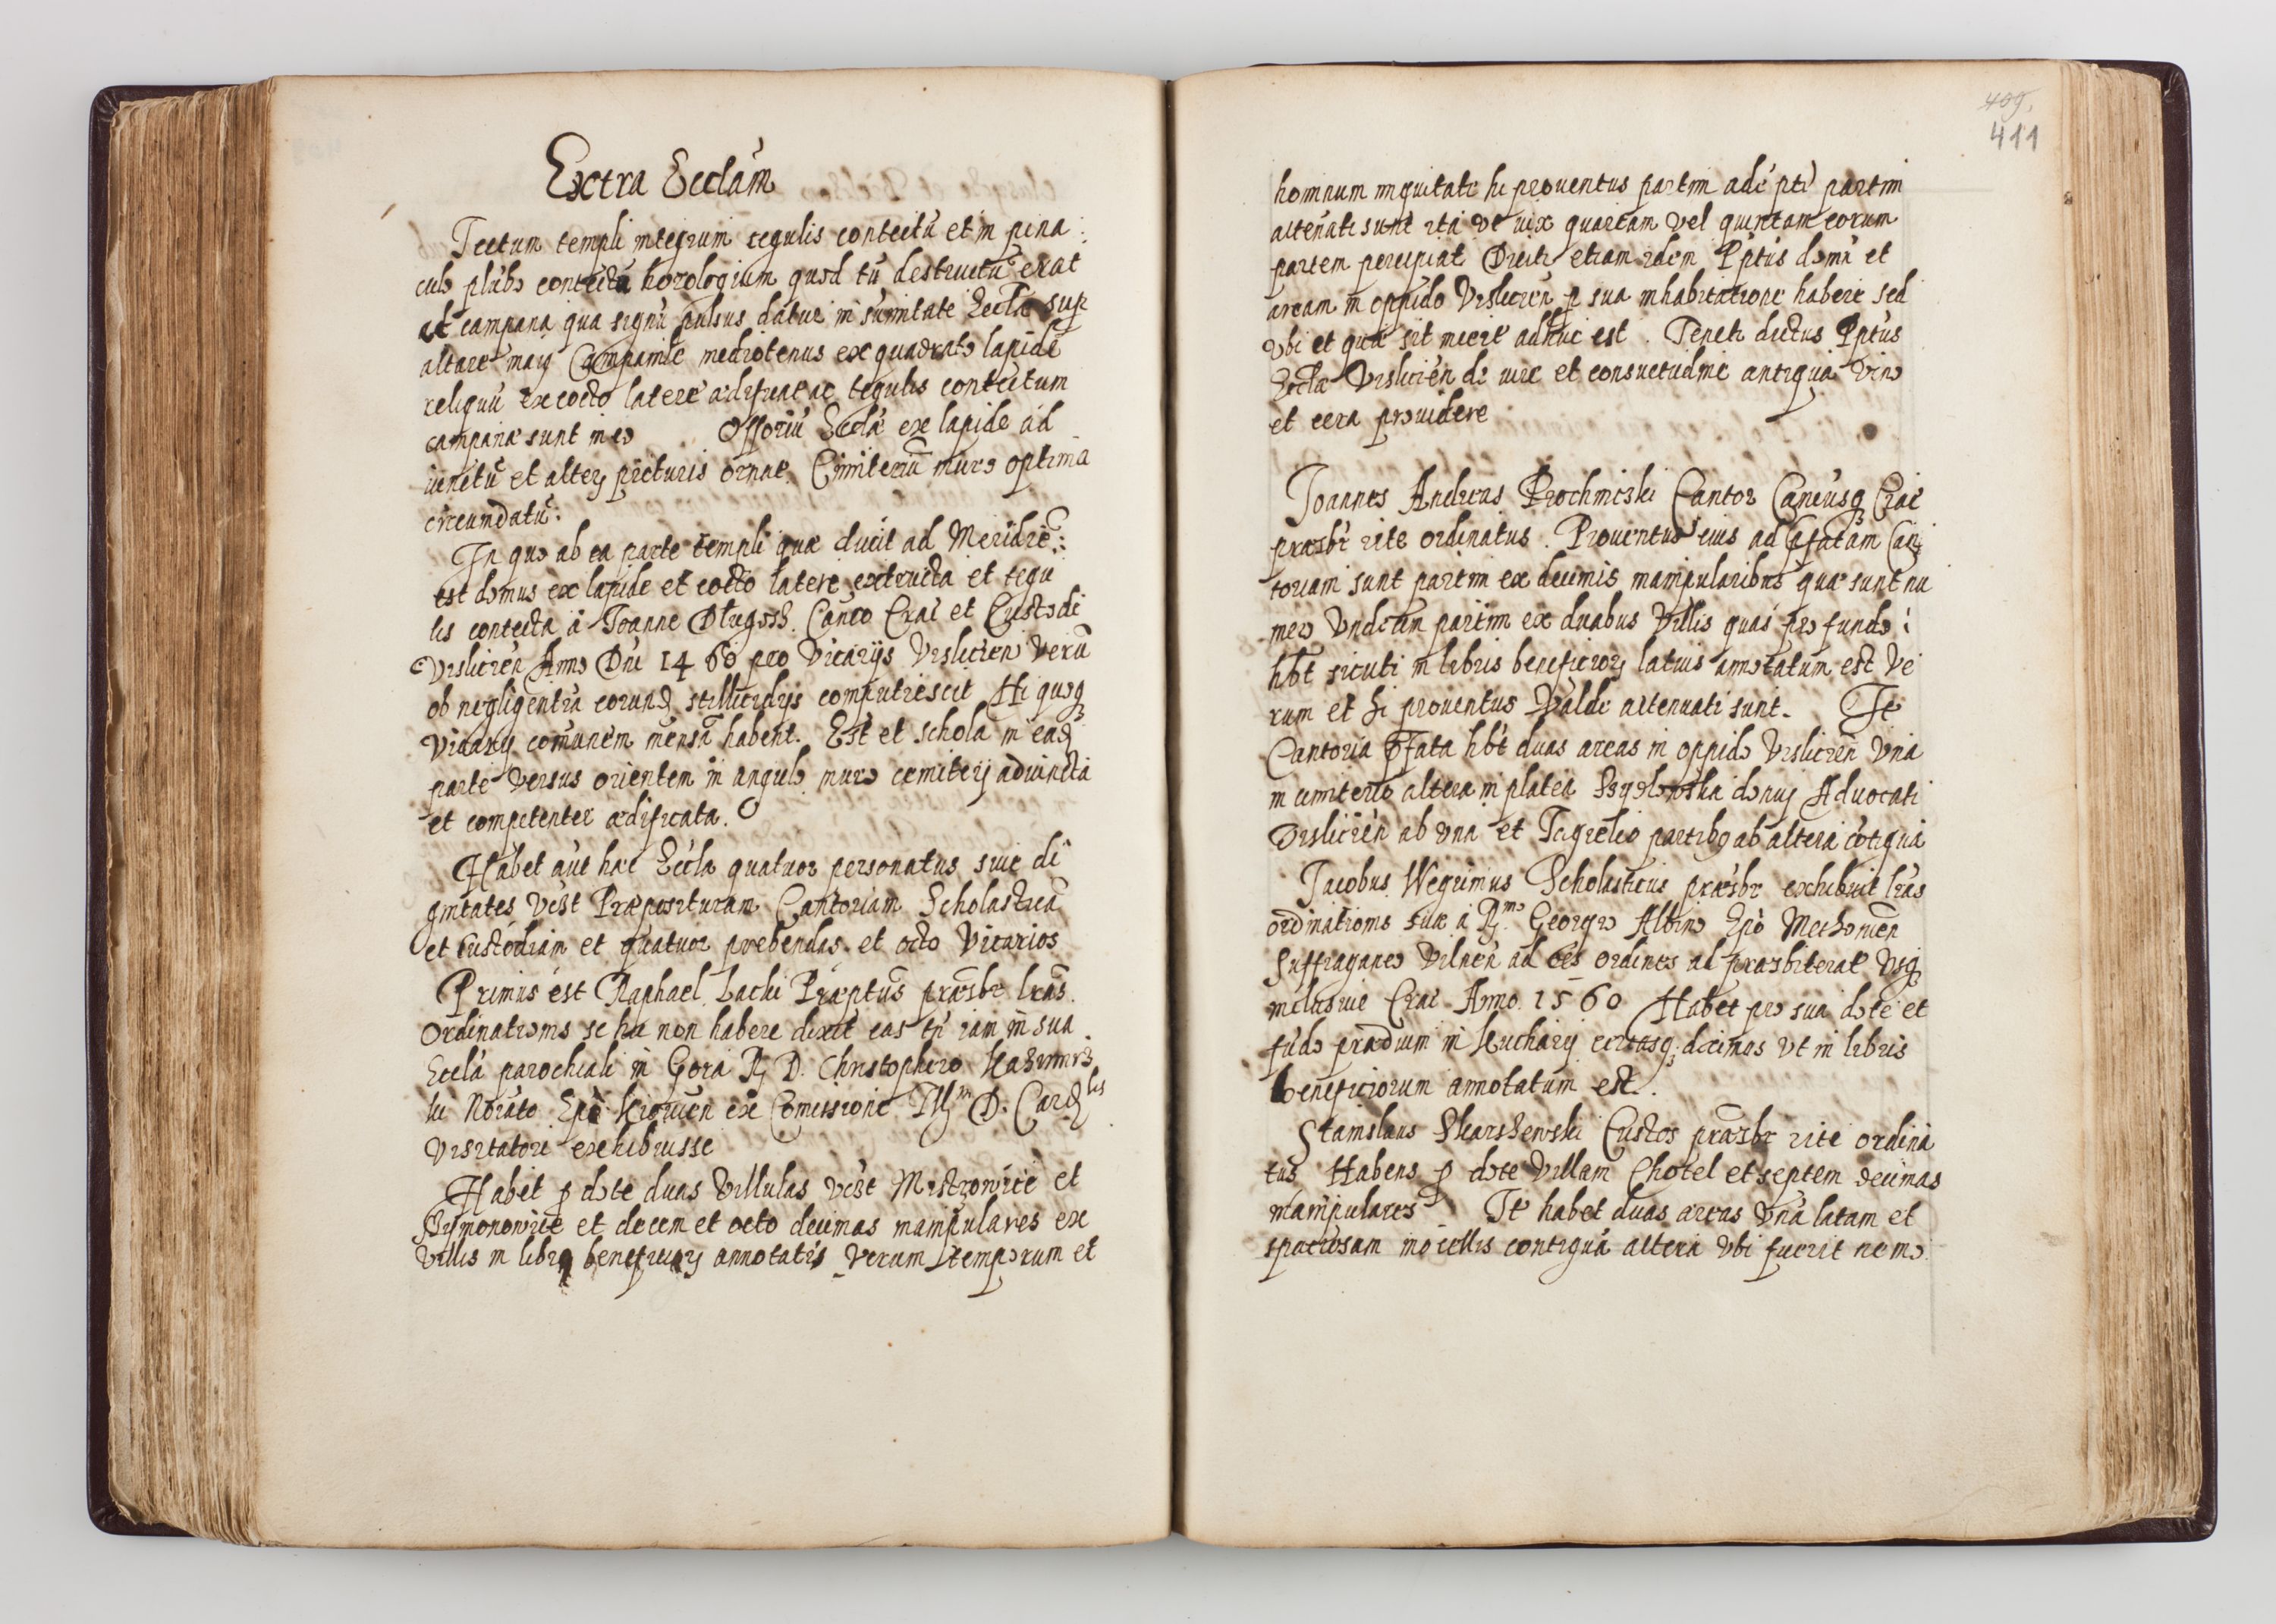 Extra Ecclam
Tectum templi integrum tegulis contectu et in pina
culo plubo contectu horologium quod tu destructu erat
et campana qua signu pulsus datur in sumitate Eccla sup
altare maij Campanile mediotenus ex quadrato lapide
reliquu ex cocto latere ædificat ac tegulis contectum
campanæ sunt in eo Ossoriu Eccla ex lapide ad
iunctu et alter picturis ornat. Cimiteriu muro optima
circumdatu.
In quo ab ea parte templi quæ ducit ad Meridie
est domus ex lapide et cocto latere extructa et tegu
lis contecta a Joanne Dlugosh. Canco Crac et Custodi
Vislicien Anno Dni 1460 pro Vicarijs Vislicien Veru
ob negligentia eorund stillicidijs computrescit Hi quoq
Vicarij comunem mensa habent. Est et schola in ead
parte versus orientem in angulo muro cemiterij adiuncta
et competenter ædificata.
Habet aut hac Eccla quatuor personatus siue di
gnitates vcst Præposituram Cantoriam Scholastria
et Custodiam et quatuor prebendas et octo Vicarios
Primus est Raphael Lachi Præptus præsbr lras
Ordinationis se hic non habere dixit eas tn iam in sua
Eccla parochiali in Gora R D. Christophoro Kazimirs
ki Norato Epo Kiouien ex Comissione Illm D. Cardlis
Visitatori exhibuisse
Habet p dote duas Villulas vcst Mistzowice et
Szymonowice et decem et octo decimas manipulares ex
Villis in libro beneficiorj annotatis Verum temporum et
409.
411
hominum iniquitate hi prouentus partim adepti partim
attenuati sunt ita vt vix quartam vel quintam eorum
partem percipiat Dicit etiam idem Pptus domu et
aream in oppido Vislicien p sua inhabitatione habere sed
vbi et quæ sit incert adhuc est. Teneti dictus Pptus
Ecclæ Vislicien de iure et consuetudine antiqua Vino
et cera prouidere
Joannes Andreas Prochniczki Cantor Cancusq Crac
præsbr rite ordinatus. Prouentus eius ad pfatam Can
toriam sunt partim ex decimis manipularibus quæ sunt nu
mero Vndecim partim ex duabus Villis quas pro fundo
hbt sicuti in libris beneficiorj latius annotatum est Ve
rum et hi prouentus Valde attenuati sunt. It
Cantoria pfata hbt duas areas in oppido Vislicien Vna
in cimiterio altera in platea domuj Aduocati
Vislicien ab vna et partibq ab altera cotigua
Jacobus Wegrinus Scholasticus præsbr exhibuit lras
ordinationis suæ a Rmo Georgio Albino Epo Methonen
Suffraganeo Vilnen ad oes ordines ad præsbiterat Vsq
inclusiue Crac Anno. 1560 Habet pro sua dote et
fudo prædium in Kucharij certasq decimas vt in libris
beneficiorum annotatum est.
Stanislaus Skarszewski Custos præsbr rite ordina
tus Habens p dote Villam Chotel et septem decimas
manipulares It habet duas areas Vna latam et
spaciosam inocellis contigua altera Vbi fuerit nemo